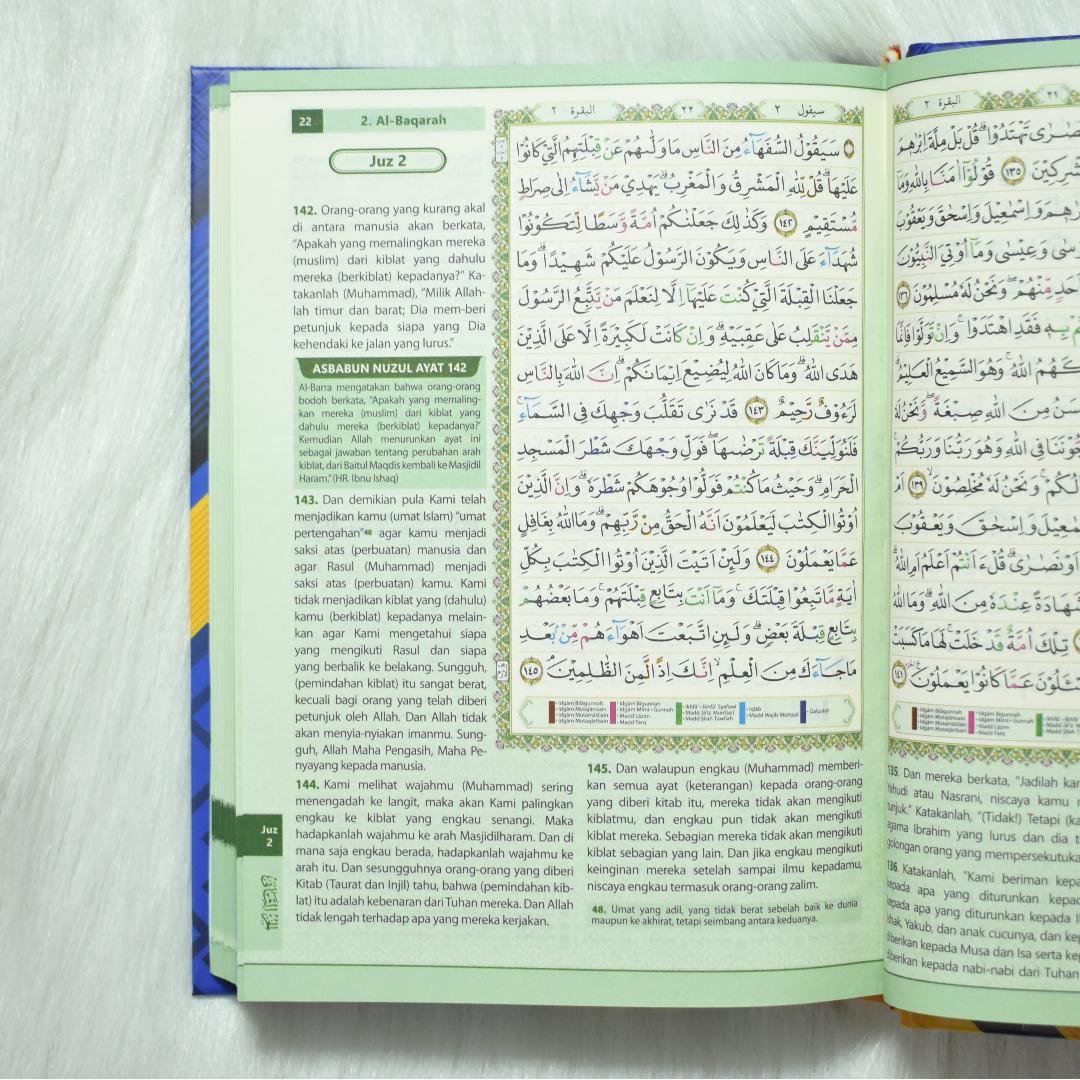 22
2. Al-Baqarah
Juz 2
142. Orang-orang yang kurang akal
di antara manusia akan berkata,
“Apakah yang memalingkan mereka
(muslim) dari kiblat yang dahulu
mereka (berkiblat) kepadanya?” Ka-
takanlah (Muhammad), “Milik Allah-
lah timur dan barat; Dia mem-beri
petunjuk kepada siapa yang Dia
kehendaki ke jalan yang lurus.”
ASBABUN NUZUL AYAT 142
Al-Barra mengatakan bahwa orang-orang
bodoh berkata, “Apakah yang memaling-
kan mereka (muslim) dari kiblat yang
dahulu mereka (berkiblat) kepadanya?”
Kemudian Allah menurunkan ayat ini
sebagai jawaban tentang perubahan arah
kiblat, dari Baitul Maqdis kembali ke Masjidil
Haram.” (HR. Ibnu Ishaq)
143. Dan demikian pula Kami telah
menjadikan kamu (umat Islam) “umat
pertengahan”48 agar kamu menjadi
saksi atas (perbuatan) manusia dan
agar Rasul (Muhammad) menjadi
saksi atas (perbuatan) kamu. Kami
tidak menjadikan kiblat yang (dahulu)
kamu (berkiblat) kepadanya melain-
kan agar Kami mengetahui siapa
yang mengikuti Rasul dan siapa
yang berbalik ke belakang. Sungguh,
(pemindahan kiblat) itu sangat berat,
kecuali bagi orang yang telah diberi
petunjuk oleh Allah. Dan Allah tidak
akan menyia-nyiakan imanmu. Sung-
guh, Allah Maha Pengasih, Maha Pe-
nyayang kepada manusia.
البقرة ٢
٢٢
سيقول ٢
سَيَقُوْلُ السُّفَهَاۤءُ مِنَ النَّاسِ مَا وَلّٰىهُمْ عَنْ قِبْلَتِهِمُ الَّتِيْ كَانُوْا
عَلَيْهَاۗ قُلْ لِّلّٰهِ الْمَشْرِقُ وَالْمَغْرِبُۗ يَهْدِيْ مَنْ يَّشَاۤءُ اِلٰى صِرَاطٍ
مُّسْتَقِيْمٍ ١٤٢ وَكَذٰلِكَ جَعَلْنٰكُمْ اُمَّةً وَّسَطًا لِّتَكُوْنُوْا
شُهَدَاۤءَ عَلَى النَّاسِ وَيَكُوْنَ الرَّسُوْلُ عَلَيْكُمْ شَهِيْدًاۗ وَمَا
جَعَلْنَا الْقِبْلَةَ الَّتِيْ كُنْتَ عَلَيْهَآ اِلَّا لِنَعْلَمَ مَنْ يَّتَّبِعُ الرَّسُوْلَ
مِمَّنْ يَّنْقَلِبُ عَلٰى عَقِبَيْهِۗ وَاِنْ كَانَتْ لَكَبِيْرَةً اِلَّا عَلَى الَّذِيْنَ
هَدَى اللّٰهُۗ وَمَا كَانَ اللّٰهُ لِيُضِيْعَ اِيْمَانَكُمْۗ اِنَّ اللّٰهَ بِالنَّاسِ
لَرَءُوْفٌ رَّحِيْمٌ ١٤٣ قَدْ نَرٰى تَقَلُّبَ وَجْهِكَ فِى السَّمَاۤءِۚ
فَلَنُوَلِّيَنَّكَ قِبْلَةً تَرْضٰىهَاۖ فَوَلِّ وَجْهَكَ شَطْرَ الْمَسْجِدِ
الْحَرَامِۗ وَحَيْثُ مَا كُنْتُمْ فَوَلُّوْا وُجُوْهَكُمْ شَطْرَهٗۗ وَاِنَّ الَّذِيْنَ
اُوْتُوا الْكِتٰبَ لَيَعْلَمُوْنَ اَنَّهُ الْحَقُّ مِنْ رَّبِّهِمْۗ وَمَا اللّٰهُ بِغَافِلٍ
عَمَّا يَعْمَلُوْنَ ١٤٤ وَلَىِٕنْ اَتَيْتَ الَّذِيْنَ اُوْتُوا الْكِتٰبَ بِكُلِّ
اٰيَةٍ مَّا تَبِعُوْا قِبْلَتَكَۚ وَمَآ اَنْتَ بِتَابِعٍ قِبْلَتَهُمْۚ وَمَا بَعْضُهُمْ
بِتَابِعٍ قِبْلَةَ بَعْضٍۗ وَلَىِٕنِ اتَّبَعْتَ اَهْوَاۤءَهُمْ مِّنْۢ بَعْدِ
مَا جَاۤءَكَ مِنَ الْعِلْمِۙ اِنَّكَ اِذًا لَّمِنَ الظّٰلِمِيْنَ ١٤٥
144. Kami melihat wajahmu (Muhammad) sering
menengadah ke langit, maka akan Kami palingkan
engkau ke kiblat yang engkau senangi. Maka
hadapkanlah wajahmu ke arah Masjidilharam. Dan di
mana saja engkau berada, hadapkanlah wajahmu ke
arah itu. Dan sesungguhnya orang-orang yang diberi
Kitab (Taurat dan Injil) tahu, bahwa (pemindahan kib-
lat) itu adalah kebenaran dari Tuhan mereka. Dan Allah
tidak lengah terhadap apa yang mereka kerjakan.
145. Dan walaupun engkau (Muhammad) memberi-
kan semua ayat (keterangan) kepada orang-orang
yang diberi kitab itu, mereka tidak akan mengikuti
kiblatmu, dan engkau pun tidak akan mengikuti
kiblat mereka. Sebagian mereka tidak akan mengikuti
kiblat sebagian yang lain. Dan jika engkau mengikuti
keinginan mereka setelah sampai ilmu kepadamu,
niscaya engkau termasuk orang-orang zalim.
48. Umat yang adil, yang tidak berat sebelah baik ke dunia
maupun ke akhirat, tetapi seimbang antara keduanya.
Juz
2
البقرة ٢
٢١
135. Dan mereka berkata, “Jadilah
Yahudi atau Nasrani, niscaya kamu
Katakanlah, “(Tidak!) Tetapi
agama Ibrahim yang lurus dan dia
golongan orang yang
136. Katakanlah, “Kami beriman
kepada apa yang diturunkan
kepada apa yang diturunkan kepada
Yakub, dan anak cucunya, dan
diberikan kepada Musa dan Isa serta
diberikan kepada nabi-nabi dari Tuhan